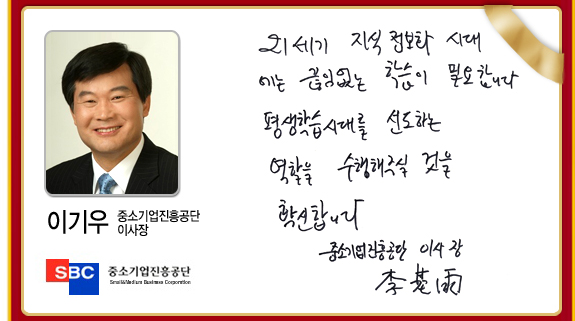 21세기 지식 정보화 시대
에는 끊임없는 학습이 필요합니다
평생학습시대를 선도하는
역할을 수행해주실 것을
확신합니다
중소기업진흥공단 이사장
李基雨
이기우 중소기업진흥공단
이사장
SBC 중소기업진흥공단
Small&Medium Business Corporation